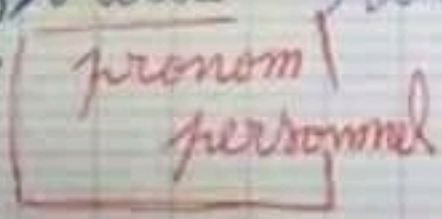 pronom
personnel